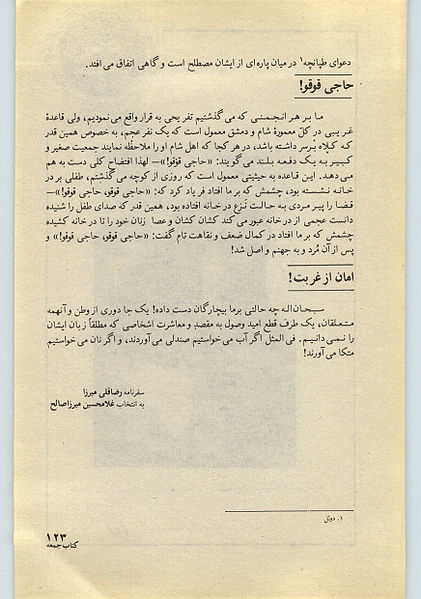 دعوای طپانچه۱ در میان پاره‌ای از ایشان مصطلح است و گاهی اتفاق می افتد.
حاجی قوقو!
ما بر هر انجمنی که می گذشتیم تفریحی به قرار واقع می نمودیم، ولی قاعدهٔ
غریبی در کلّ معمورهٔ شام و دمشق معمول است که یک نفر عجم، به خصوص همین قدر
که کلاه بر سر داشته باشد، در هر کجا که اهل شام او را ملاحظه نمایند جمعیت صغیر و
کبیر به یک دفعه بلند می گویند: «حاجی قوقو!»— لهذا افتضاح کلی دست به هم
می دهد. این قاعده به حیثیتی معمول است که روزی از کوچه می گذشتم، طفلی بر در
خانه نشسته بود، چشمش که بر ما افتاد فریاد کرد که: «حاجی قوقو، حاجی قوقو!»—
قضا را پیر مردی به حالت نزع در خانه افتاده بود، همین قدر که صدای طفل را شنیده
دانست عجمی از در خانه عبور می کند کشان کشان و عصا زنان خود را تا در خانه کشیده
چشمش که بر ما افتاد در کمال ضعف و نقاهت تام گفت: «حاجی قوقو، حاجی قوقو!» و
پس از آن مُرد و به جهنم و اصل شد!
امان از غربت!
سبحان اله چه حالتی بر ما بیچارگان دست داده! یک جا دوری از وطن و آنهمه
متعلقان، یک طرف قطع امید وصول به مقصد و معاشرت اشخاصی که مطلقاً زبان ایشان
را نمی دانیم. فی المثل اگر آب می خواستیم صندلی می آوردند، و اگر نان می خواستیم
متکا می آورند!
سفرنامه رضاقلی میرزا
به انتخاب غلامحسین میرزاصالح
۱. دوئل
۱۲۳
کتاب جمعه